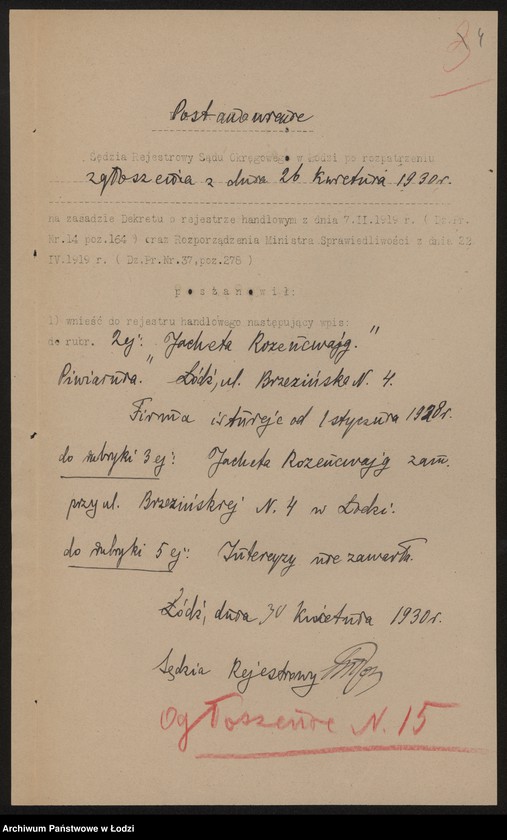 4
Postanowienie
Sędzia Rejestrowy Sądu Okręgowego w Łodzi po rozpatrzeniu
zgłoszenia z dnia 26 kwietnia 1930r.
na zasadzie Dekretu o rejestrze handlowym z dnia 7.II.1919 r. ( Dz.Pr.
Nr.14 poz.164 ) oraz Rozporządzenia Ministra Sprawiedliwości z dnia 22
IV.1919 r. ( Dz.Pr.Nr.37,poz.278 )
postanowił:
1) wnieść do rejestru handlowego następujący wpis:
do rubr. 2ej: "Jacheta Rozencwajg."
Piwiarnia." Łódź, ul. Brzezińska N. 4.
Firma istnieje od 1 stycznia 1928r.
do rubryki 3ej: Jacheta Rozencwajg zam.
przy ul. Brzezińskiej N. 4 w Łodzi.
do rubryki 5ej: Intercyzy nie zawarła.
Łódź, dnia 30 kwietnia 1930r.
Sędzia Rejestrowy
Ogłoszenie N. 15
Archiwum Państwowe w Łodzi